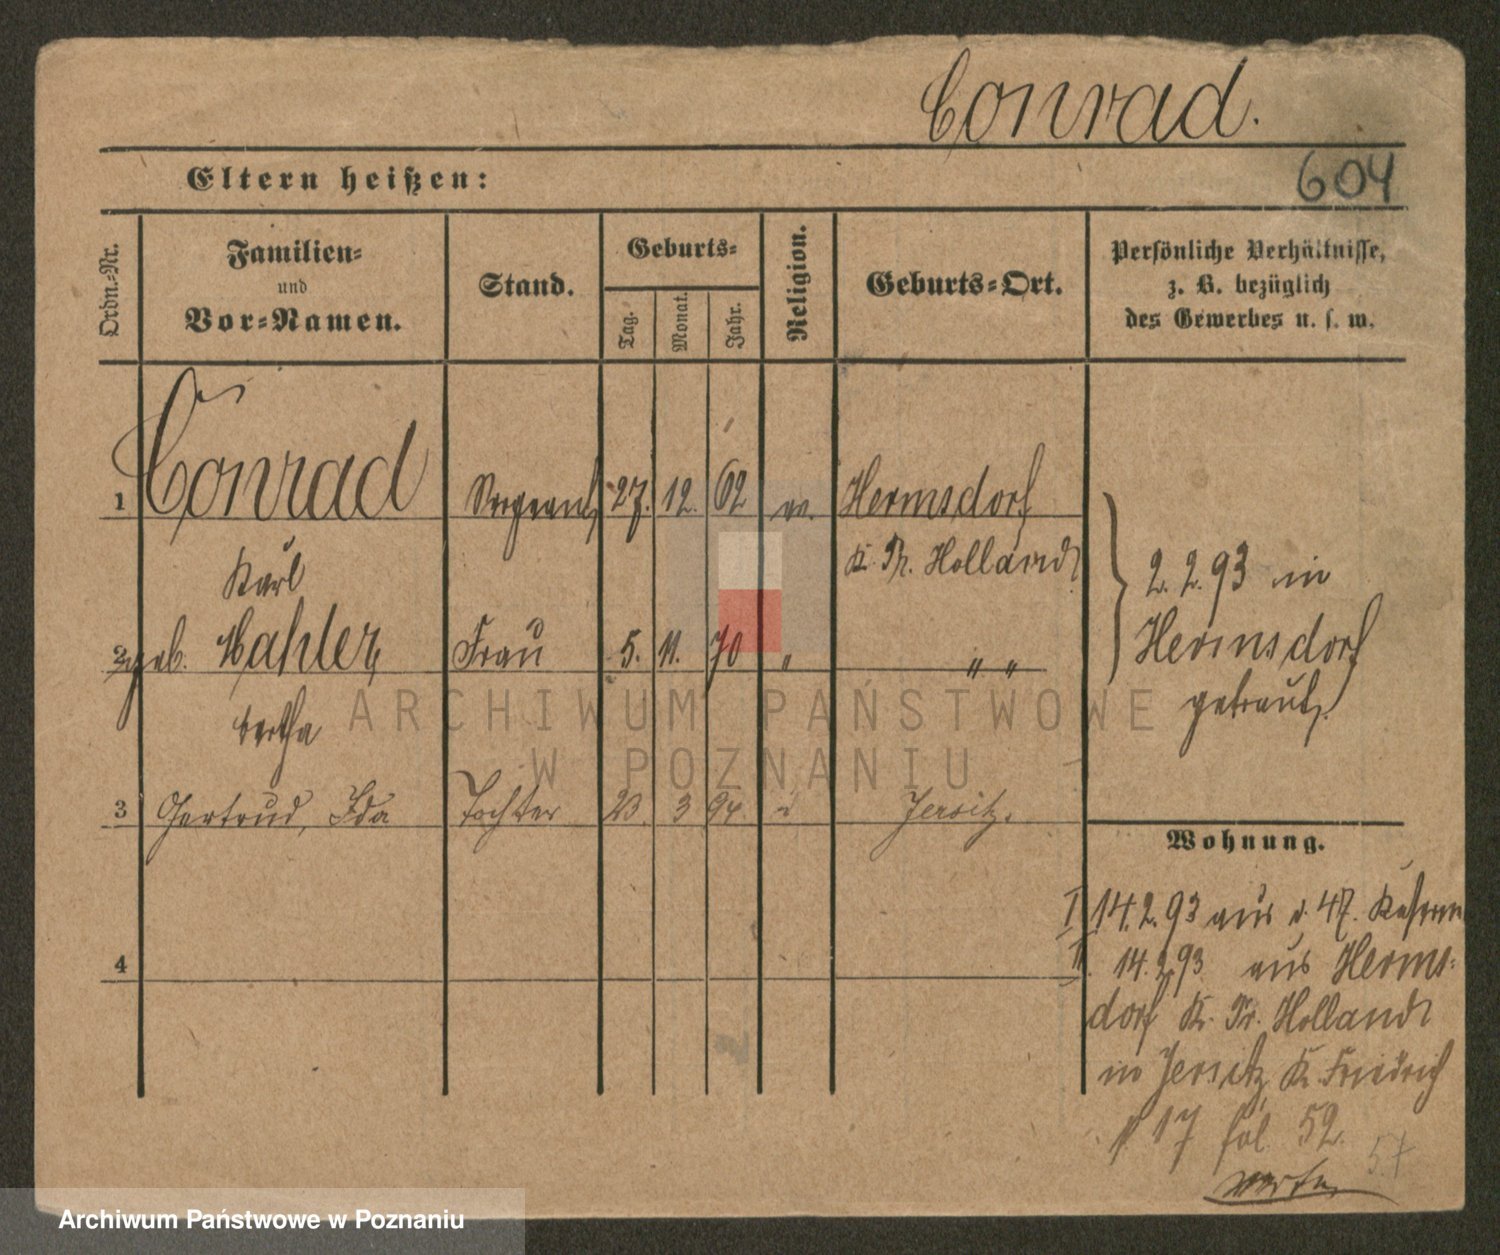 Conrad.
604
Eltern heißen:
Ordn.-Nr.
Familien-
und
Vor-Namen.
Stand.
Geburts-
Tag.
Monat.
Jahr.
Religion.
Geburts-Ort.
Persönliche Verhältnisse,
z. B. bezüglich
des Gewerbes u. s. w.
1 Conrad Sergeant 27. 12. 62 ev. Hermsdorf
Karl
K. Pr. Holland
2 geb. Mahler, Frau 5. 11. 70 " " "
Bertha
2.2.93 in
Hermsdorf
getraut.
3 Gertrud, Ida Tochter 23. 3 94. Jersitz.
4
Wohnung.
I 14.2.93 aus d. 47. Kaserne
II. 14.2.93 aus Herms-
dorf K. Pr. Holland
in Jersitz, K. Friedrich
17 fol 52.
57
ARCHIWUM PAŃSTWOWE
W POZNANIU
Archiwum Państwowe w Poznaniu